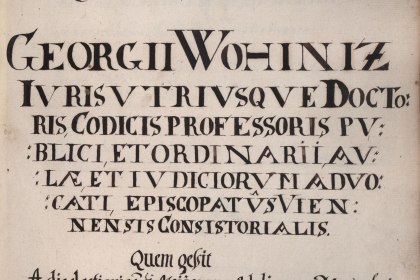 GEORGII WOHINIZ
IVRIS VTRIVSQVE DOCTO:
RIS, CODICIS PROFESSORIS PV:
:BLICI, ET ORDINARII AV:
:LÆ, ET IVDICIORVM ADVO:
:CATI, EPISCOPATVS VIEN:
NENSIS CONSISTORIALIS.
Quem gessit